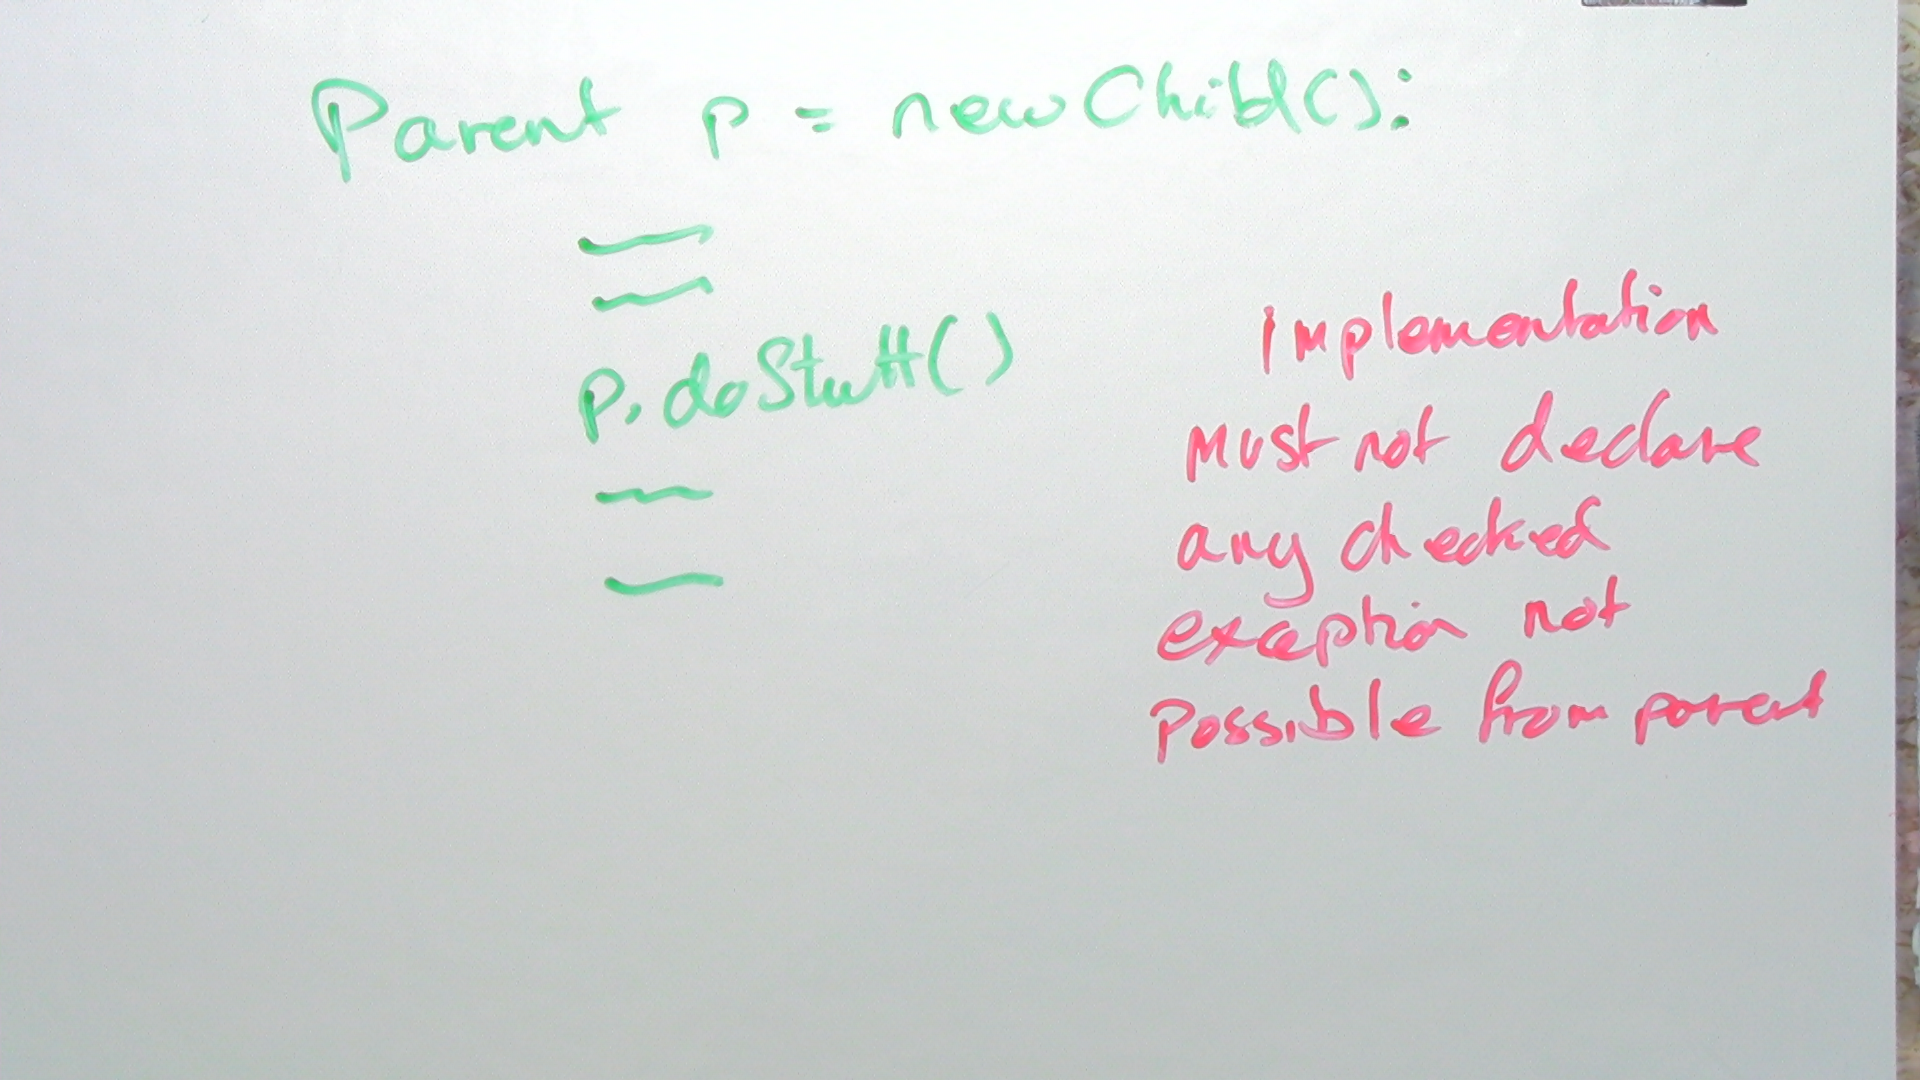 Parent p = new Child();
p.doStuff()
Implementation
must not declare
any checked
exception not
possible from parent